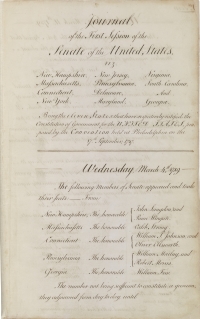 Journal
of the First Session of the
Senate of the United States.
viz
New Hampshire, New Jersey, Virginia
Massachusetts, Pennsylvania, South Carolina
Connecticut, Delaware, And
New York, Maryland, Georgia,
Being the eleven States which have respectively ratified the
Constitution of Government for the UNITED STATES, pro
posed by the Convention held at Philadelphia on the
17th September 1787.
Wednesday March 4th 1789
The following members of Senate appeared and took
their seats
New Hampshire, The honorable John Langdon and
Paine Wingate
Massachusetts The honorable Caleb Strong
Connecticut The honorable William S. Johnson and
Oliver Ellsworth
Pennsylvania The honorable William Maclay and
Robert Morris
Georgia The honorable William Few
The number not being sufficient to constitute a quorum,
they adjourned from day to day until